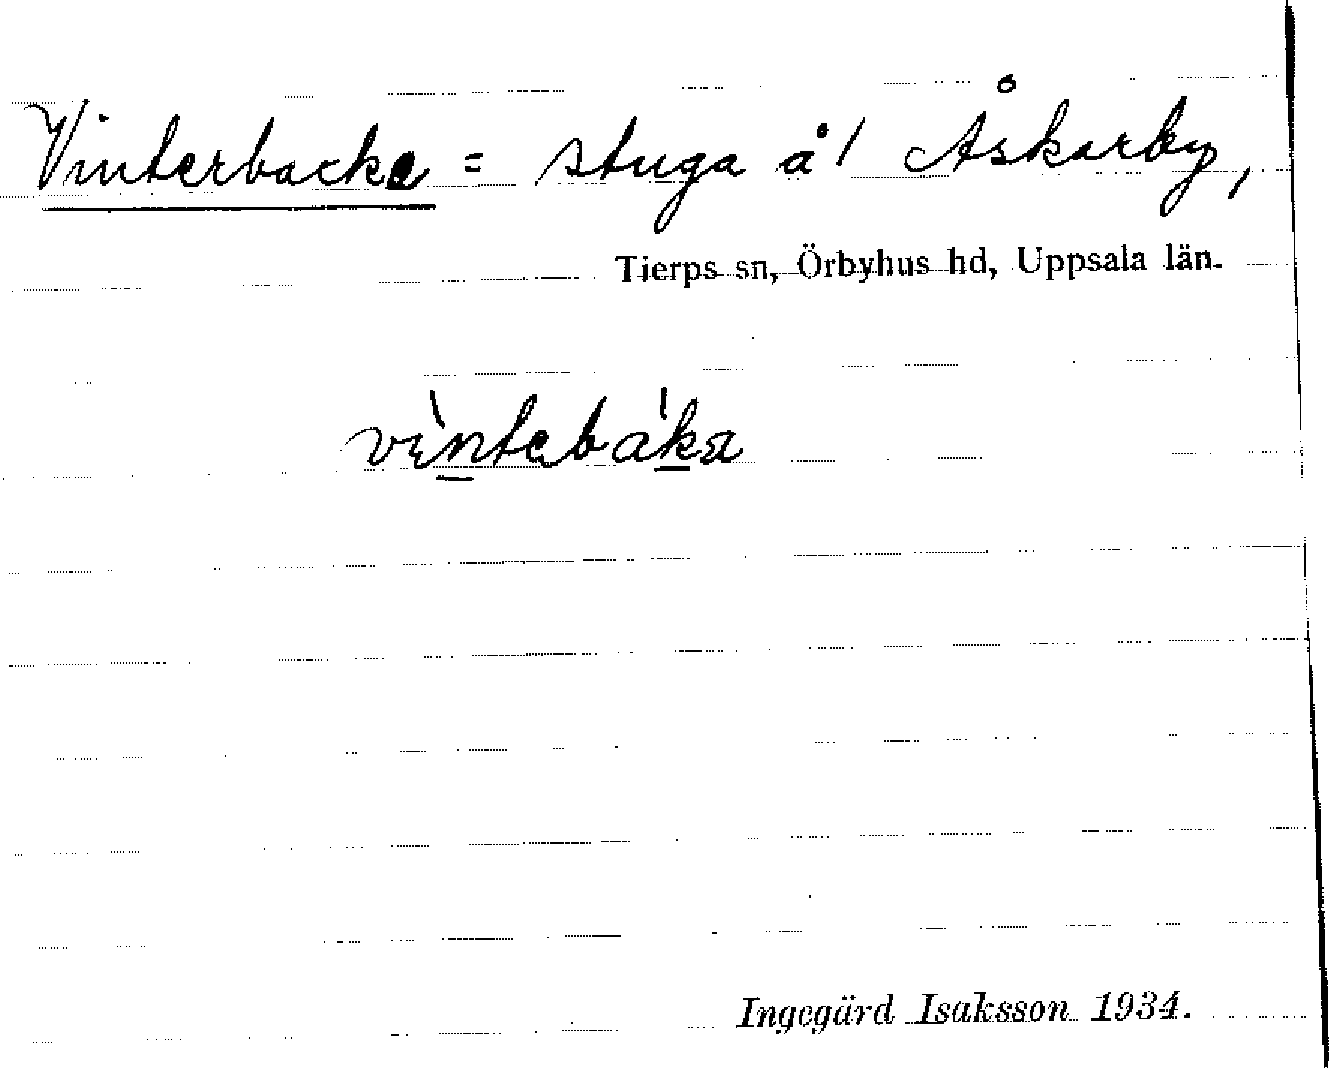 Vinterbacke = stuga å / Åskarby,
Tierps sn, Örbyhus hd, Uppsala län.
vìntebáka
Ingegärd Isaksson 1934.